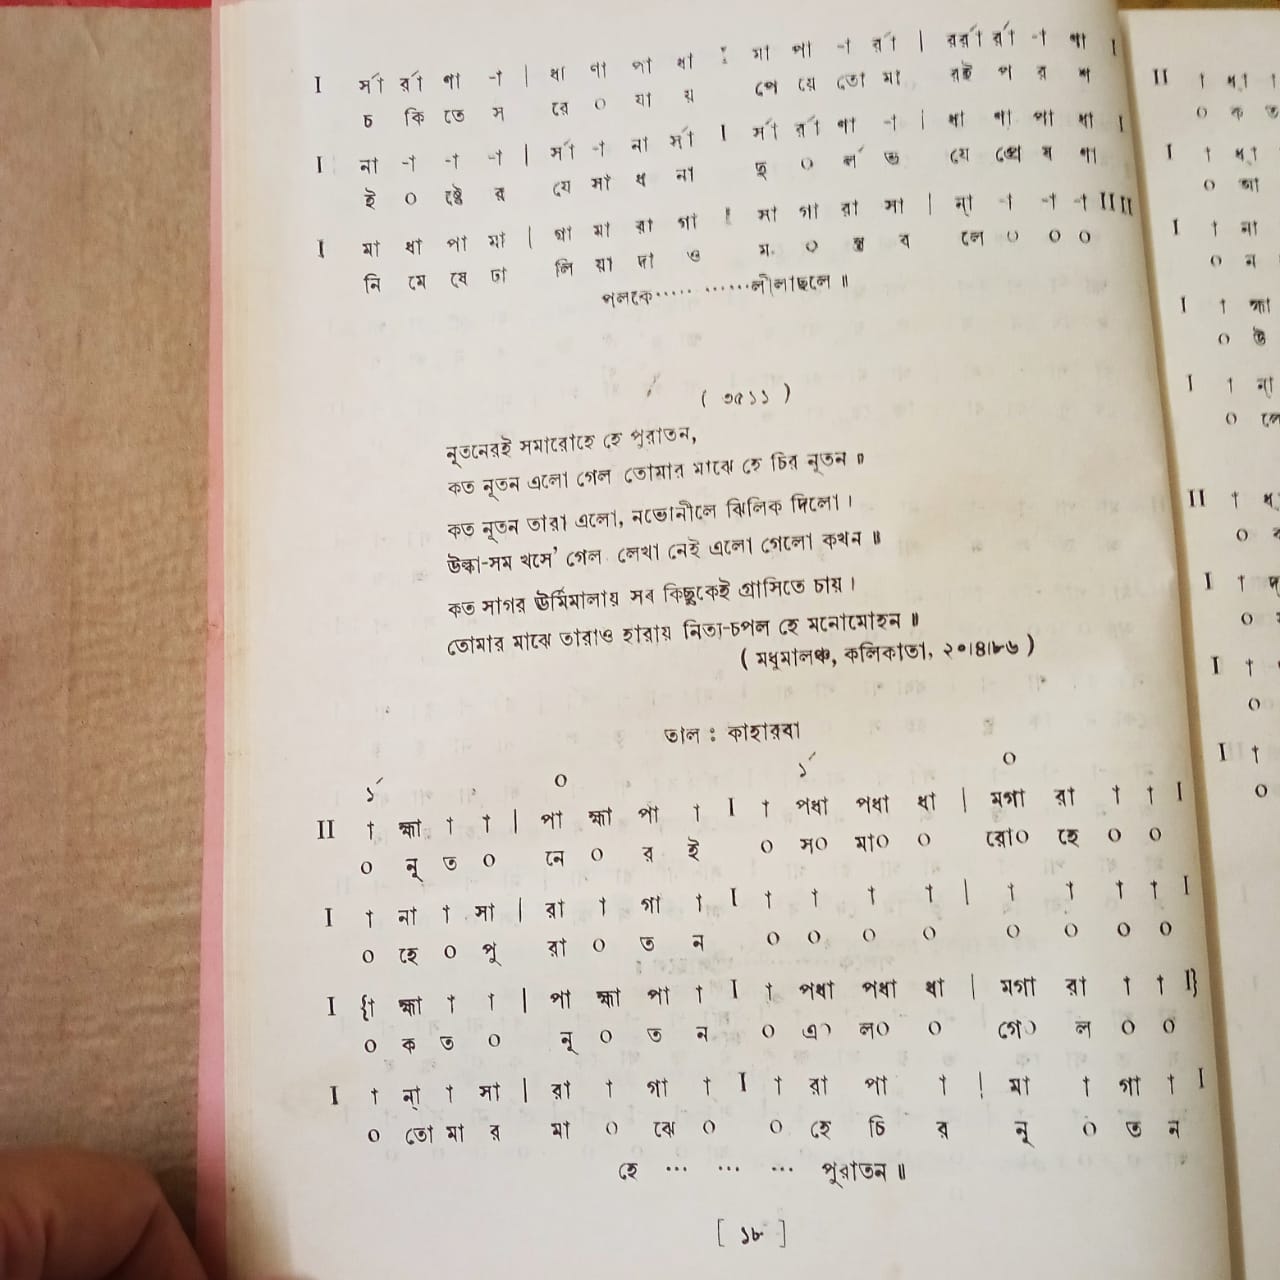 I র্সা র্রা ণা -া | ধা ণা পা ধা I মা পা -া র্রা | র্রর্রা র্রা -া ণা I
চ কি তে স রে ০ যা য় পে য়ে তো মা রই প র শ
I না -া -া -া | র্সা -া না র্সা I র্সা র্রা ণা -া | ধা ণা পা ধা I
ই ০ ষ্টে র যে সা ধ না দু ০ র্ল ভ যে
I মা ধা পা মা | গা মা রা গা I সা গা রা সা | ন্া -া -া -া II II
নি মে ষে ঢা লি য়া দা ও ম ০ ন্ত্র ব লে ০ ০ ০
পলকে........... লীলাছলে ॥
( ৩৫১১ )
নূতনেরই সমারোহে হে পুরাতন,
কত নূতন এলো গেল তোমার মাঝে হে চির নূতন ॥
কত নূতন তারা এলো, নভোনীলে ঝিলিক দিলো ।
উল্কা-সম খসে' গেল লেখা নেই এলো গেলো কখন ॥
কত সাগর ঊর্মিমালায় সব কিছুকেই গ্রাসিতে চায় ।
তোমার মাঝে তারাও হারায় নিত্য-চপল হে মনোমোহন ॥
( মধুমালঞ্চ, কলিকাতা, ২০।৪।৮৬ )
তাল : কাহারবা
১́ ০ ১́ ০
II া হ্মা া া | পা হ্মা পা া I া পধা পধা ধা | মগা রা া া I
০ নূ ত ০ নে ০ র ই ০ স০ মা০ ০ রো০ হে ০ ০
I া না া সা | রা া গা া I া া া া | া া া া I
০ হে ০ পু রা ০ ত ন ০ ০ ০ ০ ০ ০ ০ ০
I {া হ্মা া া | পা হ্মা পা া I া পধা পধা ধা | মগা রা া া I}
০ ক ত ০ নূ ০ ত ন ০ এ০ ল০ ০ গে০ ল ০ ০
I া ন্া া সা | রা া গা া I া রা পা া | মা া গা া I
০ তো মা র মা ০ ঝে ০ ০ হে চি র নূ ০ ত ন
হে ... ... ... পুরাতন ॥
[ ১৮ ]